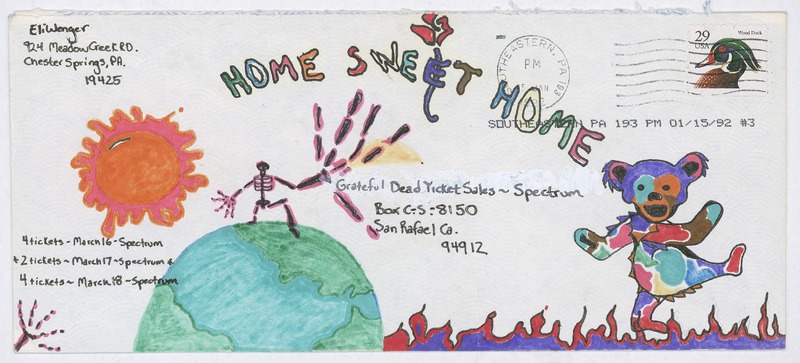 Eli Wenger
924 Meadow Creek RD.
Chester Springs, PA.
19425
HOME SWEET HOME
SOUTHEASTERN, PA 193
PM
JAN
29
USA
Wood Duck
SOUTHEASTERN PA 193 PM 01/15/92 #3
Grateful Dead Ticket Sales ~ Spectrum
Box C-S-8150
San Rafael Ca.
94912
4 tickets - March 16 - Spectrum
*2 tickets ~ March 17 - Spectrum *
4 tickets ~ March 18 - Spectrum